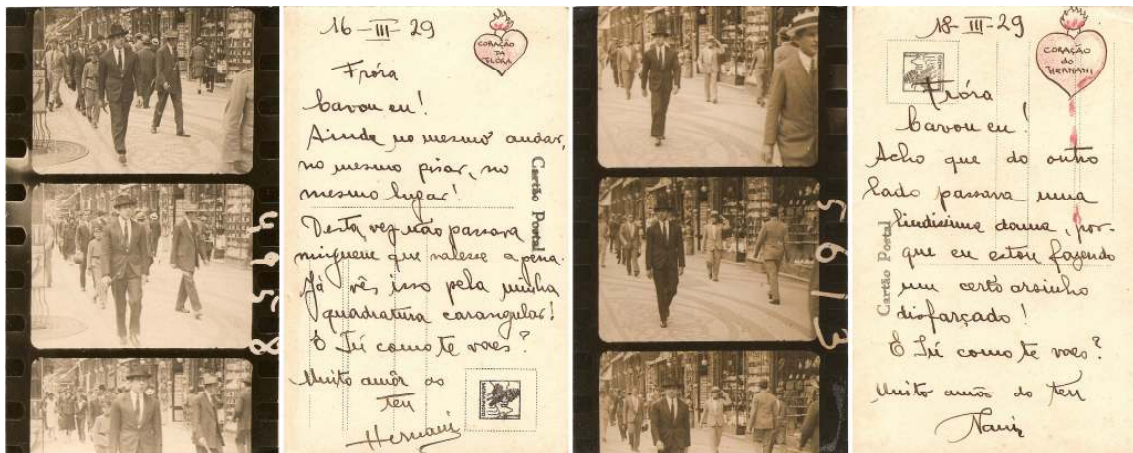 16-III-29
CORAÇÃO
DA
FLÓRA
Fróra
Cavou eu!
Ainda no mesmo andar,
no mesmo pisar, no
mesmo lugar!
Desta vez não passava
ninguem que valesse a pena.
Já vês isso pela minha
quadratura carangular!
E Tú como te vaes?
Muito amôr do
teu
Hernani
Cartão Postal
18-III-29
CORAÇÃO
do
HERNANI
Fróra
Cavou eu!
Acho que do outro
lado passava uma
lindissima dama, por-
que eu estou fazendo
um certo arsinho
disfarçado!
E Tú como te vaes?
Muito amôr do teu
Nani
Cartão Postal